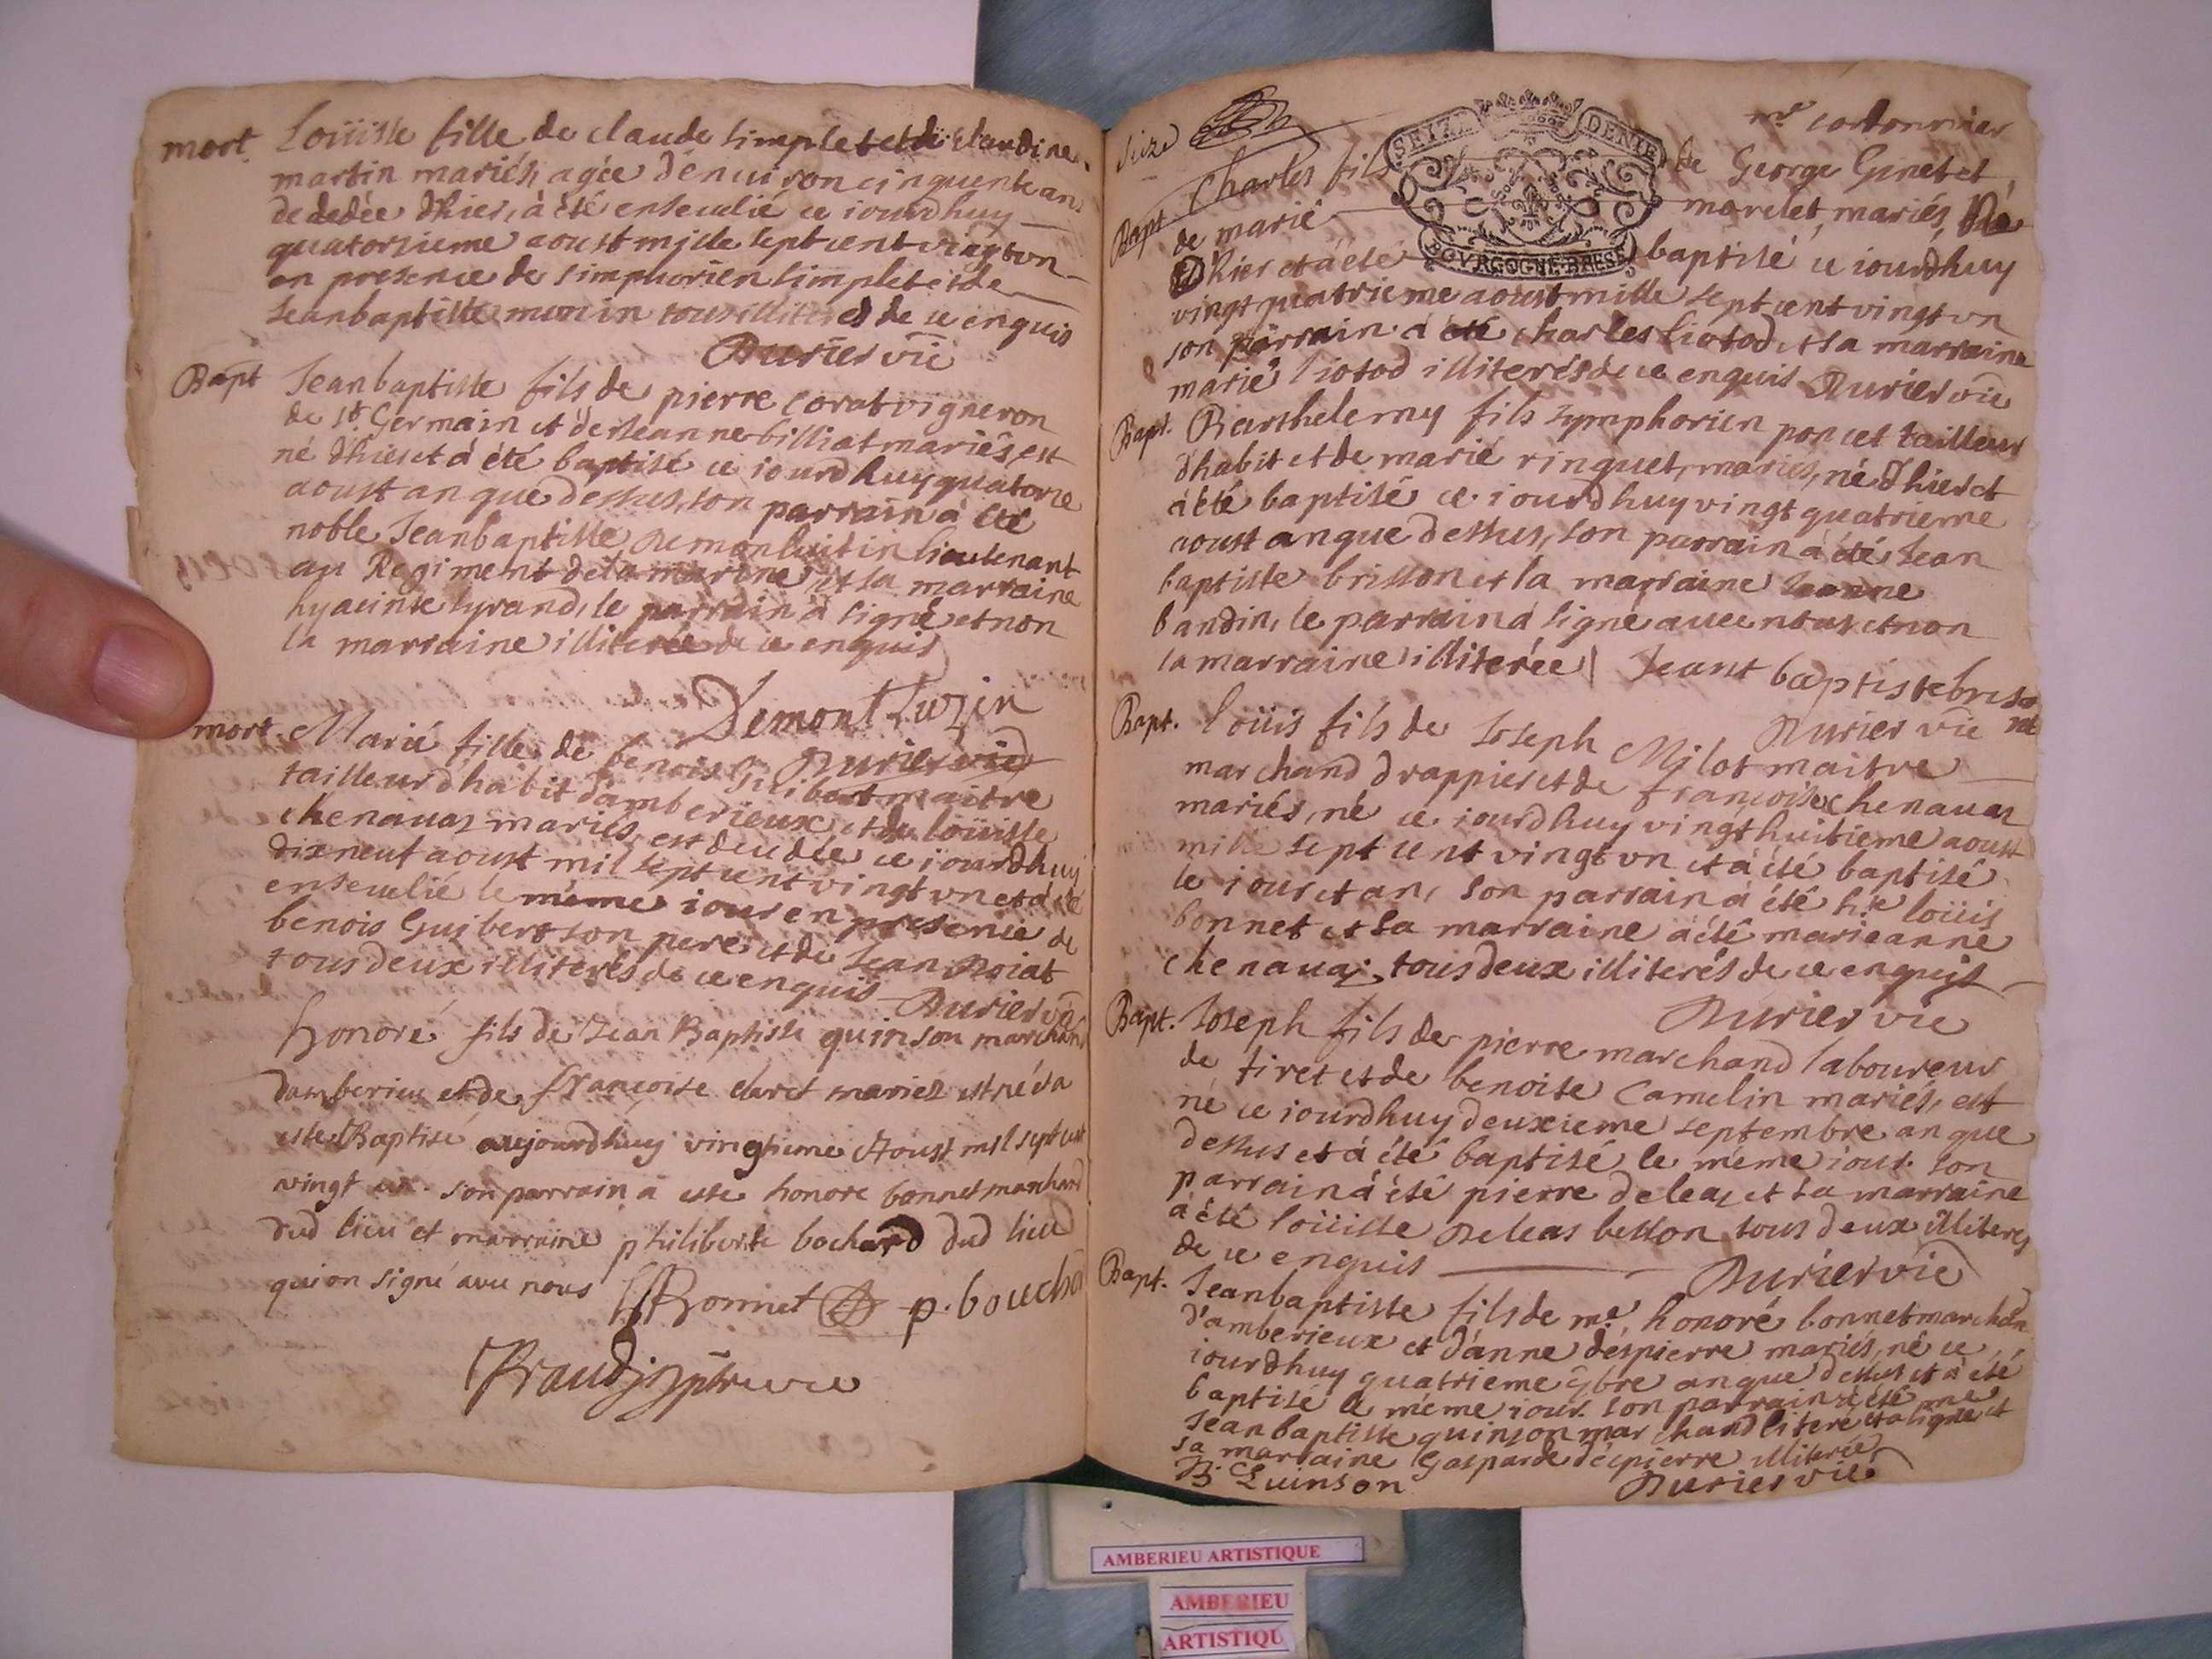 mort. Loüisse fille de claude simplet et de claudine
martin mariés, agée d'environ cinquente ans
decedée d'hier, à été enseuelié ce iourdhuy
quatorsieme aoust mille sept cent vingt vn
en presence de simphorien simplet et de
Jeanbaptiste munin tous illiterés de ce enquis
Durier vic
Bapt Jeanbaptiste fils de pierre corat vigneron
de st. Germain et de Jeanne billiat mariés, est
né d'hier et à été baptisé ce iourdhuy quatorze
aoust an que dessus, son parrain à été
noble Jeanbaptiste Demonluisin lieutenant
au Regiment de la marine et sa marraine
hyacinte syrand, le parrain à signé et non
la marraine illiterée de ce enquis
Demontluzin
Durier vic
mort. Marié fille de benois Guibert maitre
tailleur d'habit d'amberieux et de loüisse
chenauaz mariés, est decedée ce iourdhuy
dixneuf aoust mil sept cent vingt vn et à été
enseuelié le méme iour en presence de
benois Guibert son pere et de Jean Noiat
tous deux illiterés de ce enquis
Durier vic
honoré fils de Jean Baptiste quinson marchand
damberieu et de françoise claret mariez est né et a
esté Baptisé aujourdhuy vingtieme Aoust mil sept cent
vingt un. son parrain a esté honore bonnet marchand
dud lieu et marraine philiberte bochard dud lieu
qui on signé avec nous
Bonnet p. bouchar
seize
SEIZ. DENIE
BOVRGOGNE BRESE
me cordonnier
Bapt Charles fils de George Ginet et
de marié morelet, mariés, Né
d'hier et à été baptisé ce iourdhuy
vingt quatrieme aoust mille sept cent vingt vn
son parrain à été charles liotod et sa marraine
marié liotod illiterés de ce enquis Durier vic
Bapt. Barthelemy fils symphorien poncet tailleur
d'habit et de marié ringuet, mariés, né d'hier et
à été baptisé ce iourdhuy vingt quatrieme
aoust an que dessus, son parrain à été Jean
baptiste brisson et sa marraine Jeanne
bandin, le parrain à signé auec nous et non
la marraine illiterée Jeant baptiste brisso
nt
Durier vic
Bapt. Loüis fils de Joseph Milot maitre
marchand drappier et de françoise chenauaz
mariés, né ce iourdhuy vingt huitieme aoust
mille sept cent vingt vn et à été baptisé
le iour et an, son parrain à été sie loüis
bonnet et sa marraine à été marieanne
chenauaz tous deux illiterés de ce enquis
Durier vic
Bapt. Joseph fils de pierre marchand laboureur
de tiret et de benoite Camelin mariés, est
né ce iourdhuy deuxieme septembre an que
dessus et à été baptisé le méme iour. son
parrain à été pierre deleaz et sa marraine
à été loüisse Deleas besson tous deux illiterés
de ce enquis Durier vic
Bapt. Jeanbaptiste fils de me. honoré bonnet marchan
d'amberieux et d'anne déspierre mariés, né ce
iourdhuy quatrieme 7bre an que dessus et à été
baptisé le méme iour. son parrain à été me
Jeanbaptiste quinson marchand literé et a signé et
sa marraine Gasparde déspierre illiterée
B. Quinson Durier vic
AMBERIEU ARTISTIQUE
AMBERIEU
ARTISTIQU